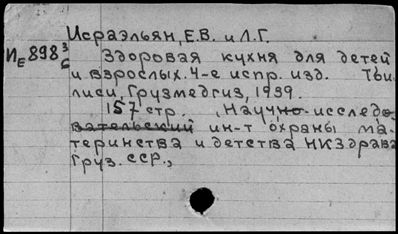 Исраэльян, Е.В. и Л.Г.
ИЕ 898 3/6 Здоровая кухня для детей
и взрослых. 4-е испр. изд. Тби-
лиси, Грузмедгиз, 1939.
157 стр. , Научно-исследо-
вательский ин-т охраны ма-
теринства и детства НКЗдрава
Груз. ССР.,